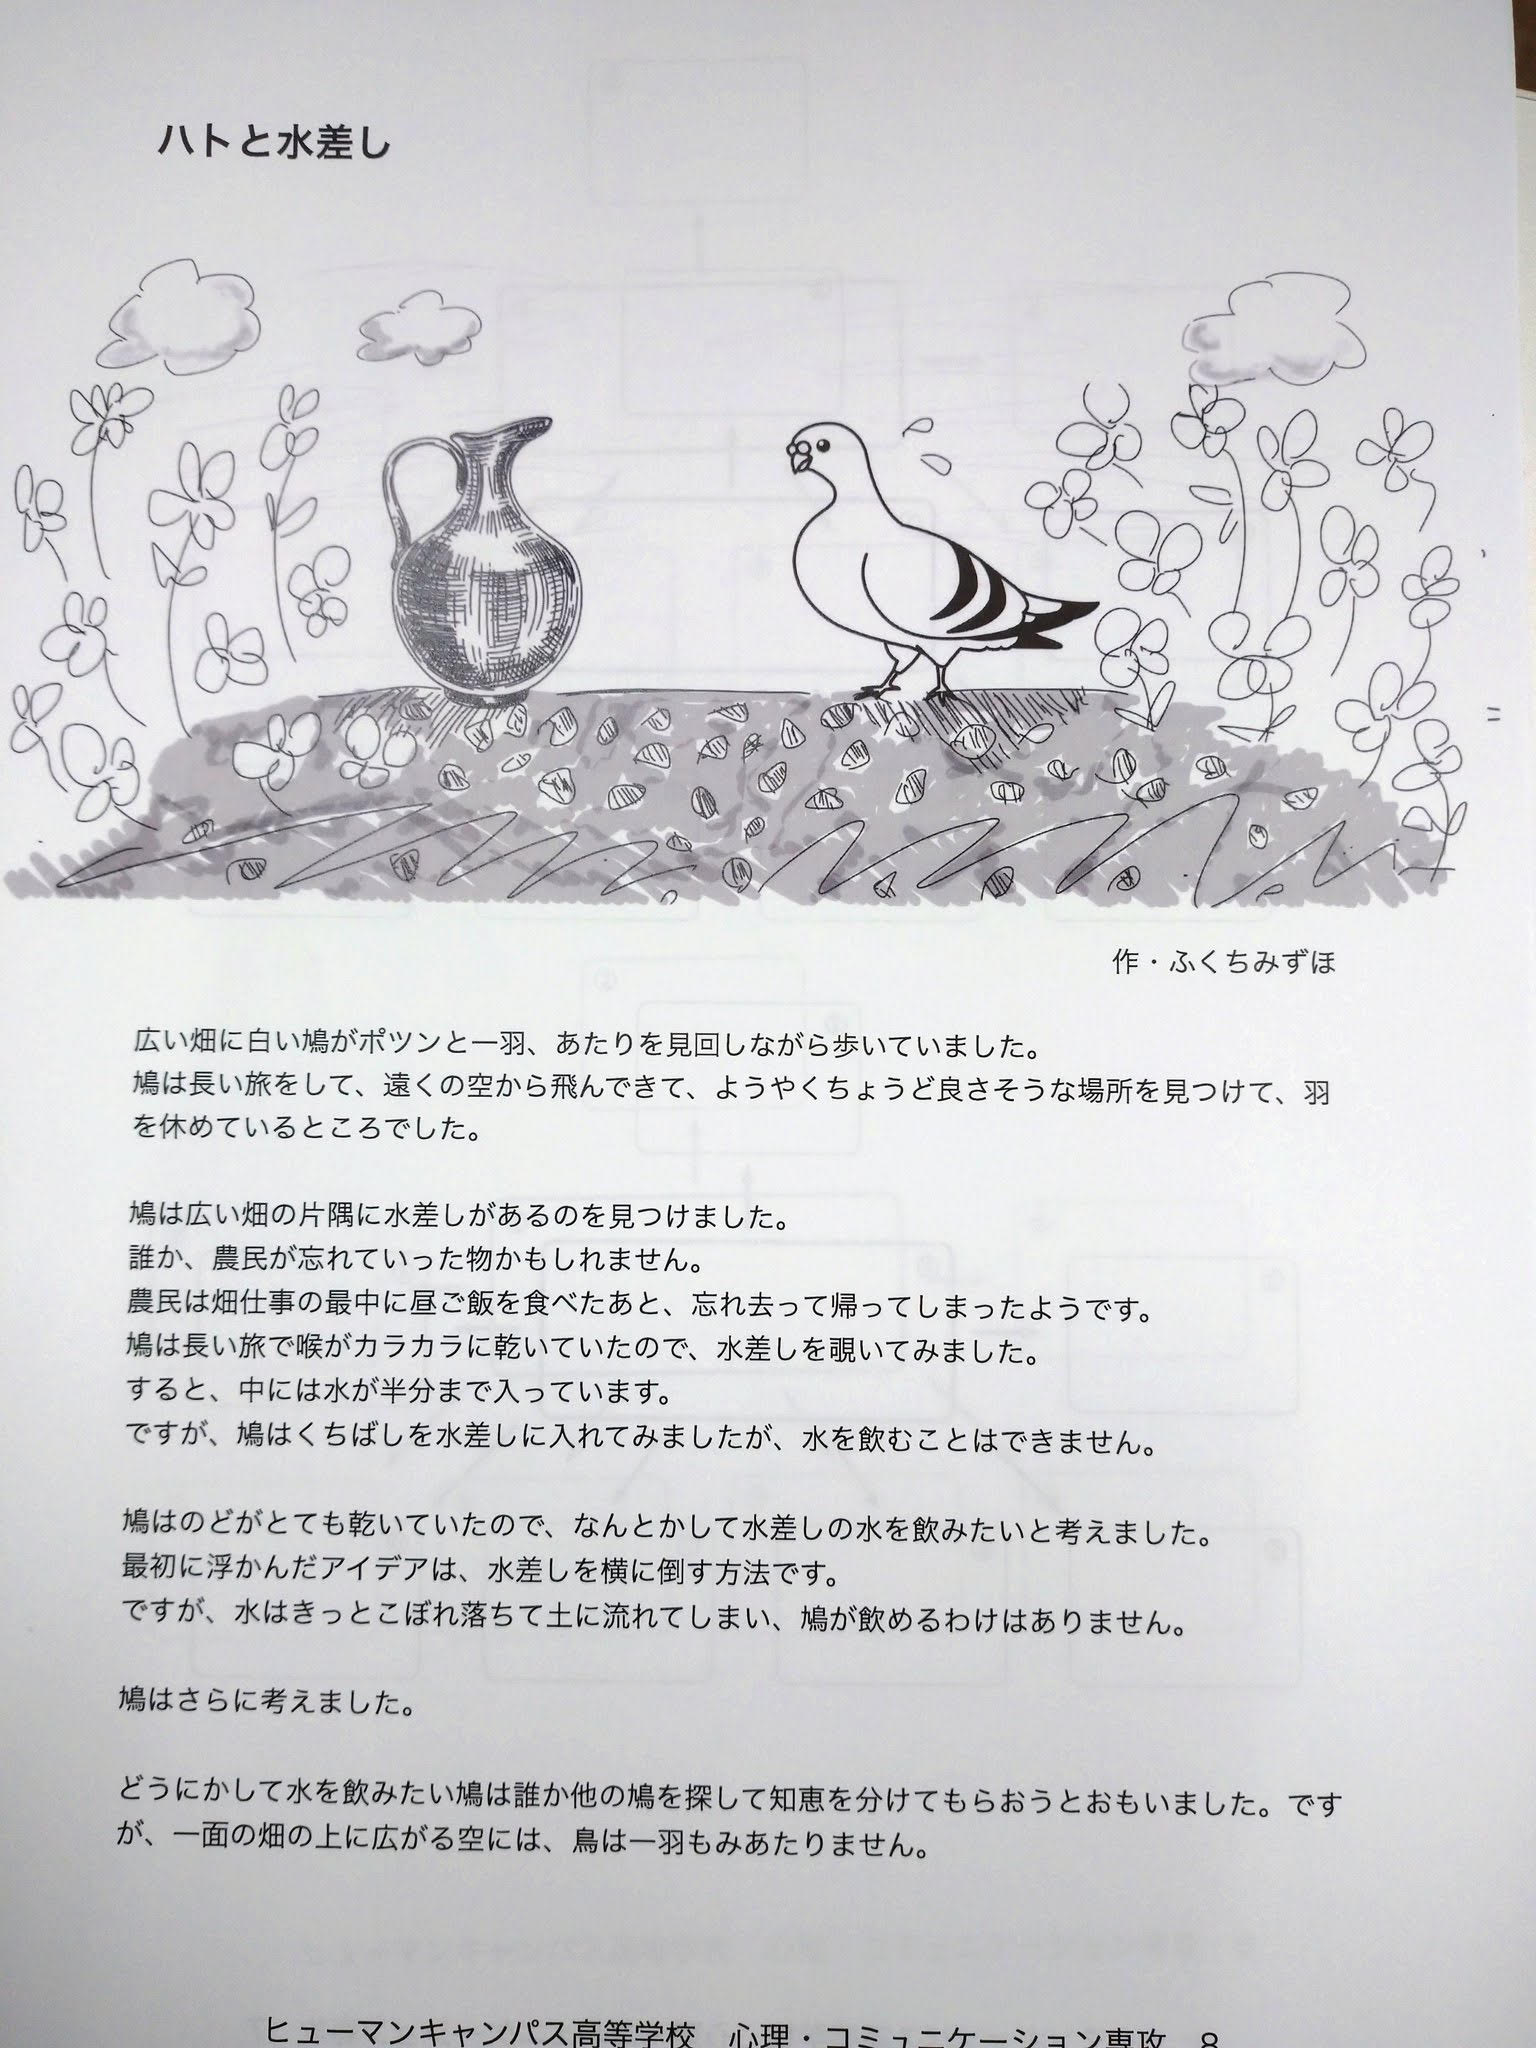 ハトと水差し
作・ふくちみずほ
広い畑に白い鳩がポツンと一羽、あたりを見回しながら歩いていました。
鳩は長い旅をして、遠くの空から飛んできて、ようやくちょうど良さそうな場所を見つけて、羽
を休めているところでした。
鳩は広い畑の片隅に水差しがあるのを見つけました。
誰か、農民が忘れていった物かもしれません。
農民は畑仕事の最中に昼ご飯を食べたあと、忘れ去って帰ってしまったようです。
鳩は長い旅で喉がカラカラに乾いていたので、水差しを覗いてみました。
すると、中には水が半分まで入っています。
ですが、鳩はくちばしを水差しに入れてみましたが、水を飲むことはできません。
鳩はのどがとても乾いていたので、なんとかして水差しの水を飲みたいと考えました。
最初に浮かんだアイデアは、水差しを横に倒す方法です。
ですが、水はきっとこぼれ落ちて土に流れてしまい、鳩が飲めるわけはありません。
鳩はさらに考えました。
どうにかして水を飲みたい鳩は誰か他の鳩を探して知恵を分けてもらおうとおもいました。です
が、一面の畑の上に広がる空には、鳥は一羽もみあたりません。
ヒューマンキャンパス高等学校　心理・コミュニケーション専攻　8